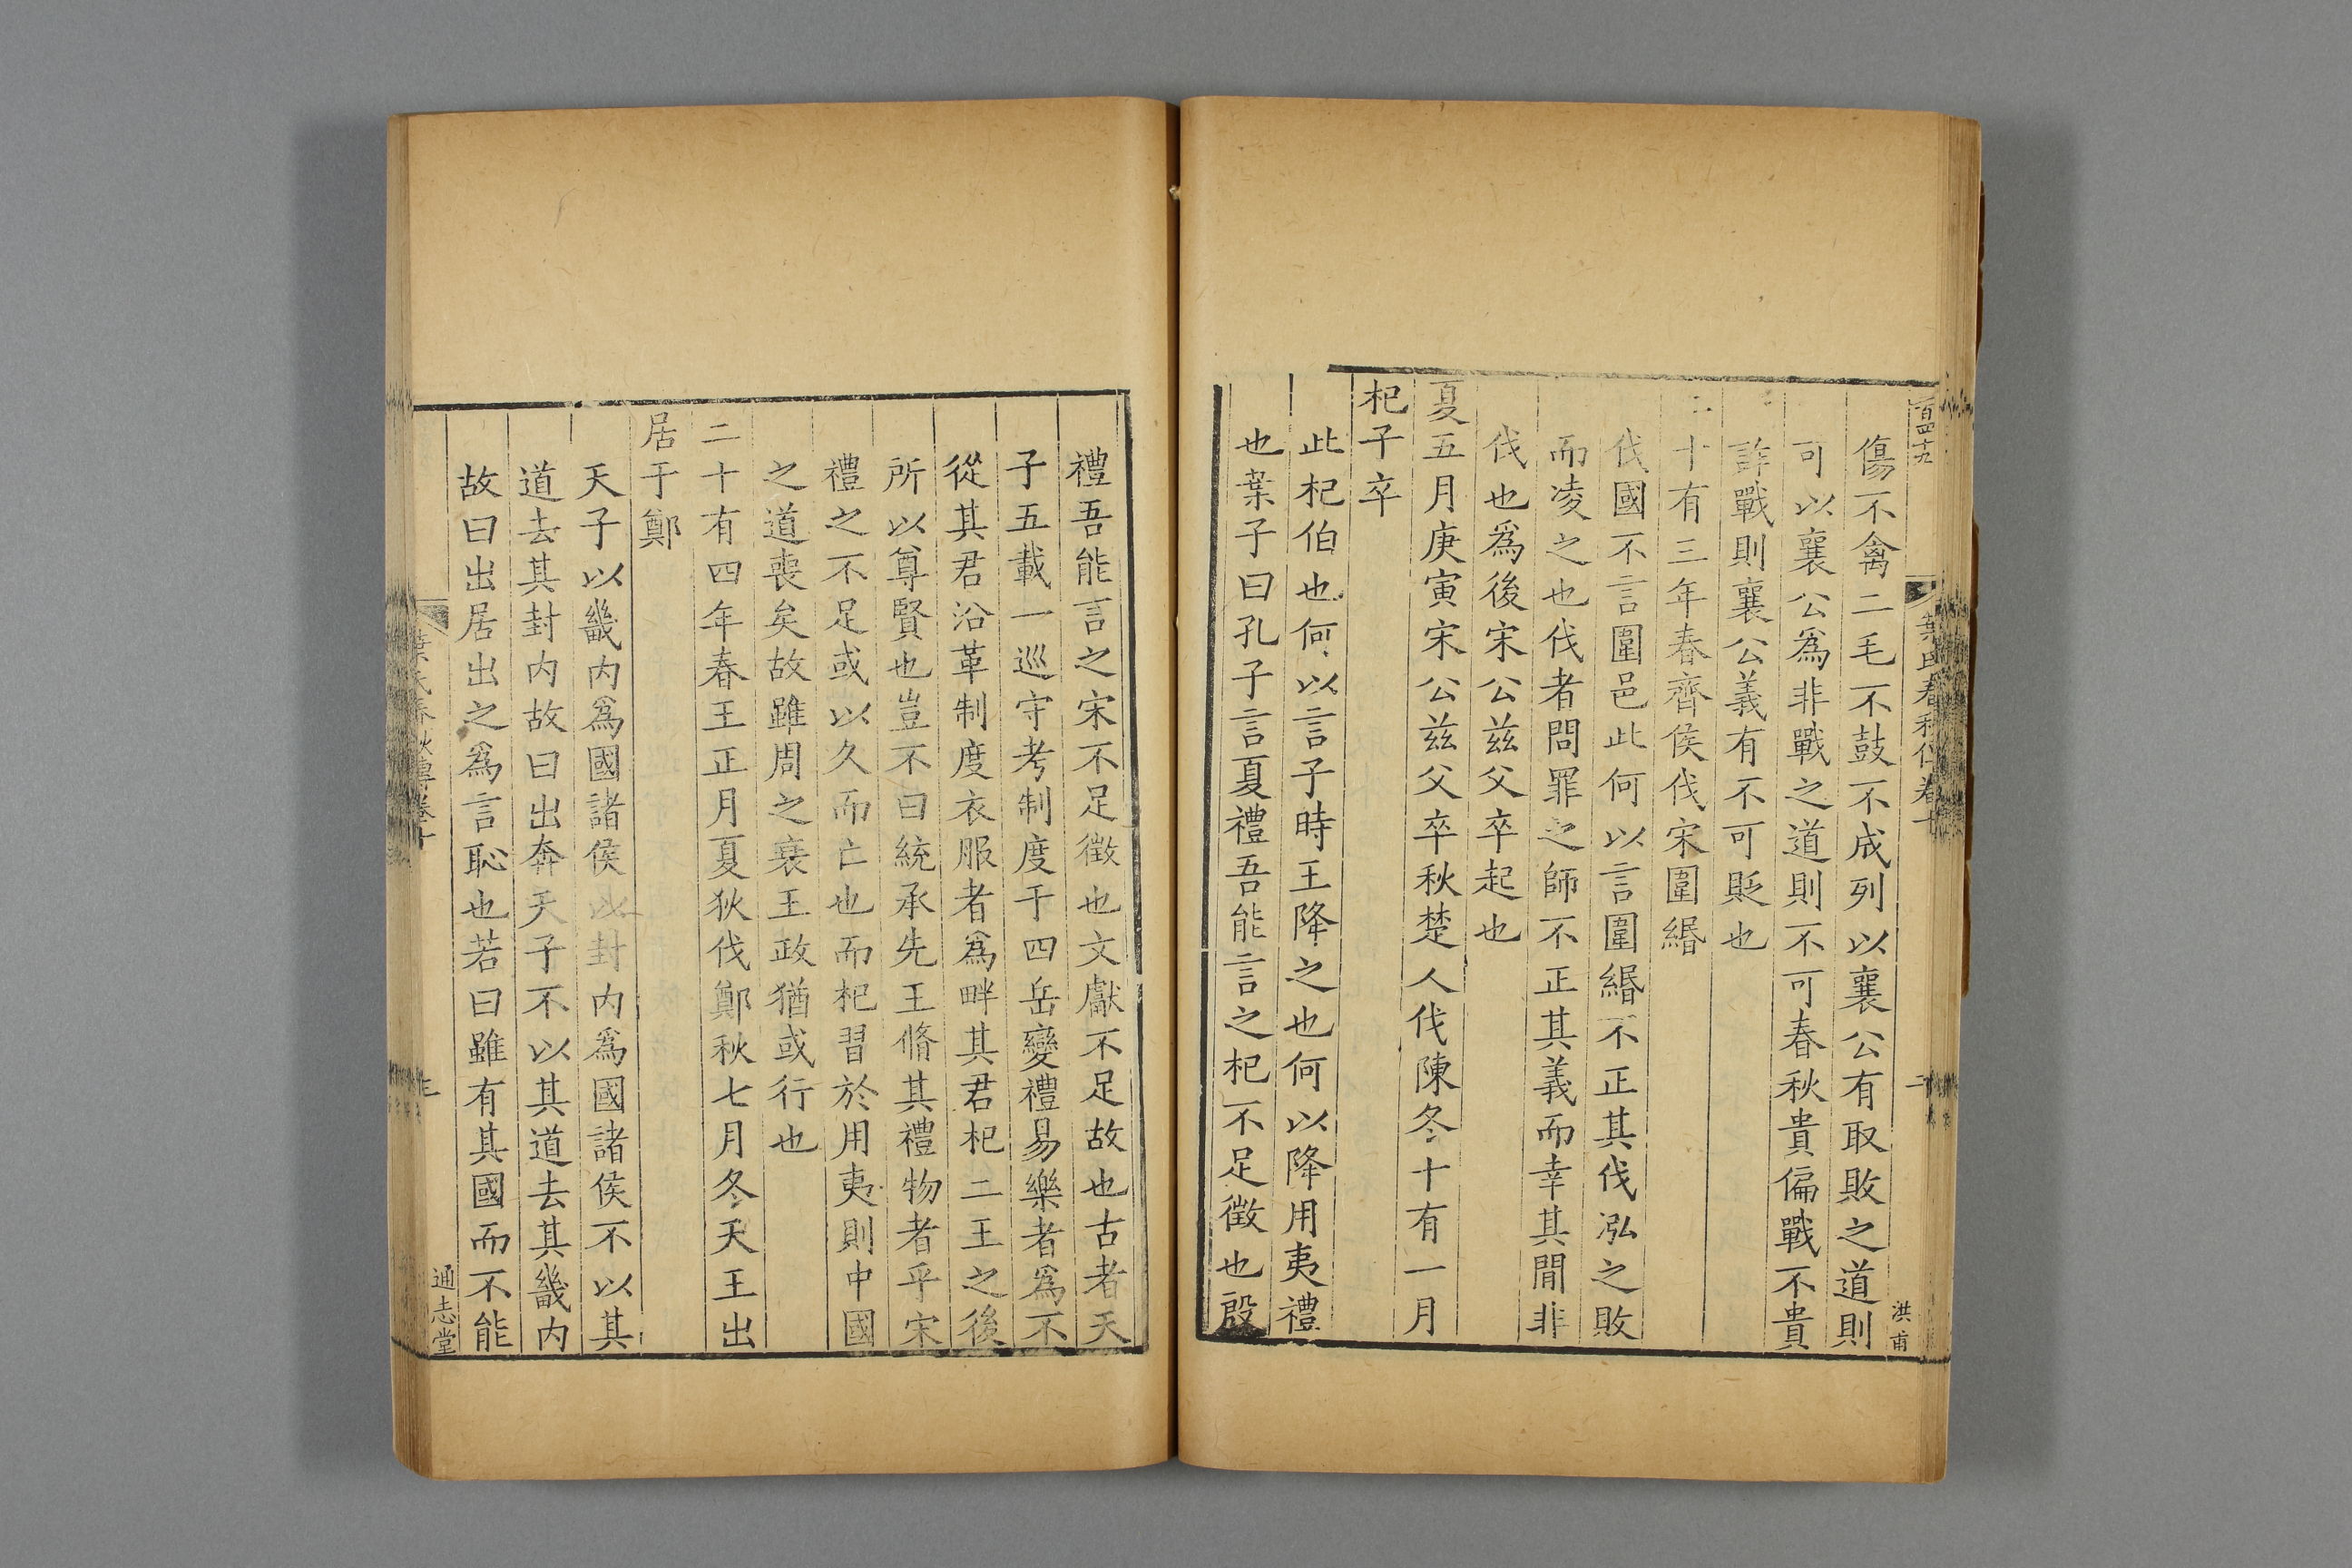 百四十九
葉氏春秋傳卷十
二
洪甫
傷不禽二毛不鼓不成列以襄公有取敗之道則
可以襄公爲非戰之道則不可春秋貴偏戰不貴
詐戰則襄公義有不可貶也
二十有三年春齊侯伐宋圍緡
伐國不言圍邑此何以言圍緡不正其伐泓之敗
而凌之也伐者問罪之師不正其義而幸其閒非
伐也爲後宋公茲父卒起也
夏五月庚寅宋公茲父卒秋楚人伐陳冬十有一月
杞子卒
此杞伯也何以言子時王降之也何以降用夷禮
也葉子曰孔子言夏禮吾能言之杞不足徵也殷
禮吾能言之宋不足徵也文獻不足故也古者天
子五載一巡守考制度于四岳變禮易樂者爲不
從其君沿革制度衣服者爲畔其君杞二王之後
所以尊賢也豈不曰統承先王脩其禮物者乎宋
禮之不足或以久而亡也而杞習於用夷則中國
之道喪矣故雖周之衰王政猶或行也
二十有四年春王正月夏狄伐鄭秋七月冬天王出
居于鄭
天子以畿内爲國諸侯以封内爲國諸侯不以其
道去其封内故曰出奔天子不以其道去其畿内
故曰出居出之爲言恥也若曰雖有其國而不能
葉氏春秋傳卷十
三
通志堂